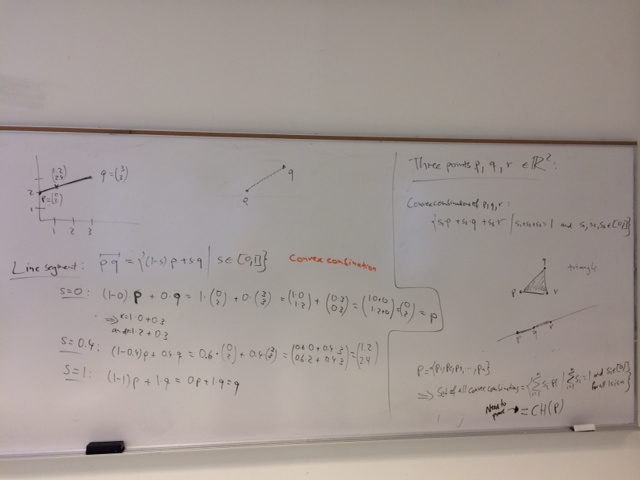 2
1
1 2 3
(1.2
2.4)
p = (0
2)
q = (3
3)
p
q
Line segment: pq = {(1-s)p + sq | s ∈ [0,1]}
Convex combination
s=0: (1-0)·p + 0·q = 1·(0 2) + 0·(3 3) = (1·0 1·2) + (0·3 0·3) = (1·0+0·3 1·2+0·3) = (0 2) = p
⇒ x=1·0+0·3
and 1·2+0·3
s=0.4: (1-0.4)p + 0.4q = 0.6·(0 2) + 0.4·(3 3) = (0.6·0+0.4·3 0.6·2+0.4·3) = (1.2 2.4)
s=1: (1-1)p + 1·q = 0p+1·q = q
Three points p, q, r ∈ ℝ²:
Convex combinations of p,q,r:
{s₁p + s₂q + s₃r | s₁+s₂+s₃=1 and s₁,s₂,s₃∈[0,1]}
q
triangle
p r
p q r
P={p₁,p₂,p₃,...,pₙ}
⇒ Set of all convex combinations = {∑ sᵢ pᵢ | ∑ sᵢ = 1 and sᵢ∈[0,1] for all 1≤i≤n}
Need to
prove → = CH(P)